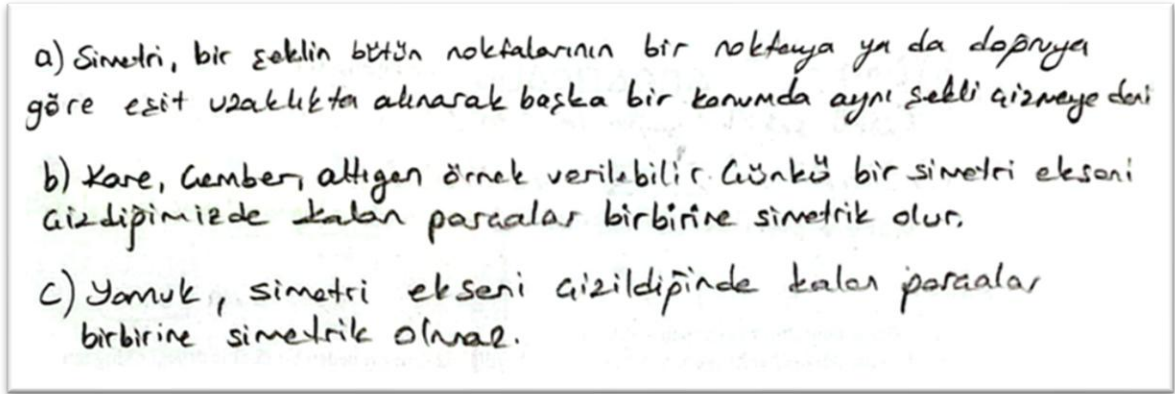 a) Simetri, bir şeklin bütün noktalarının bir noktaya ya da doğruya
göre eşit uzaklıkta alınarak başka bir konumda aynı şekli çizmeye deni
b) Kare, Çember, altıgen örnek verilebilir. Çünkü bir simetri ekseni
çizdiğimizde kalan parçalar birbirine simetrik olur.
c) Yamuk, simetri ekseni çizildiğinde kalan parçalar
birbirine simetrik olmaz.